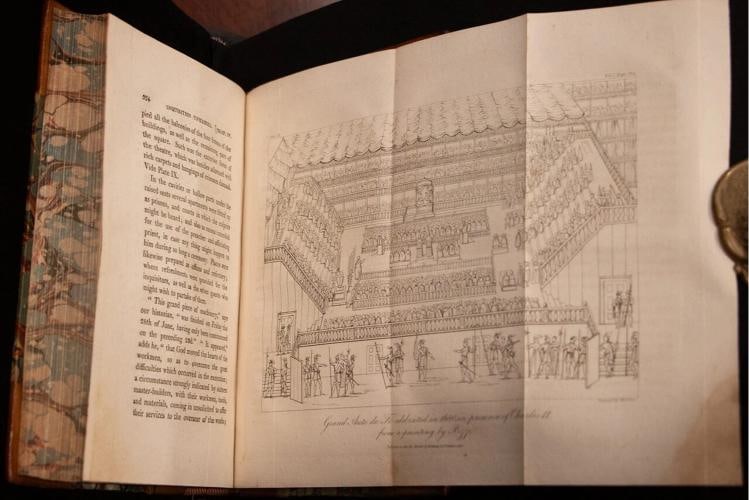 374 INQUISITION UNMASKED.
pied all the balconies of the four fronts of the
buildings, as well as the remaining part of
the square. Such was the exterior form of
the theatre, which was besides adorned with
rich carpets and hangings of crimson damask.
Vide Plate IX.
In the cavities or hollow parts under the
raised seats several apartments were fitted up
as prisons, and courts in which the culprits
might be heard; and also as rooms intended
for the use of the preacher and officiating
priest, in case any thing might happen to
him during so long a ceremony. Places were
likewise prepared as offices and refectory,
where refreshments were provided for the
inquisitors, as well as the other guests who
might wish to partake of them.
"This grand piece of machinery," says
our historian, "was finished on Friday the
28th of June, having only been commenced
on the preceding 23d." "It appeared,"
adds he, "that God moved the hearts of the
workmen, so as to overcome the great
difficulties which occurred in the execution;
a circumstance strongly indicated by sixteen
master-builders, with their workmen, tools,
and materials, coming in unsolicited to offer
their services to the overseer of the works;
Grand Auto de Fe celebrated in 1680 in presence of Charles II.
from a painting by Rizzi